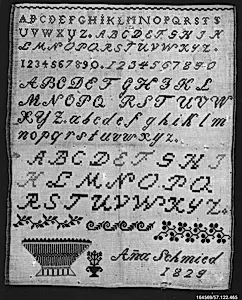 ABCDEFGHIKLMNOPQRSTS
UVWXYZ. ABCDEFGHIK
LMNOPQRSTUVWXYZ.
1234567890. 1234567890
ABCDEFGHIKL
MNOPQRSTUVW
XYZ. abcdefghiklm
nopqrstuvwxyz.
ABCDEFGHI
KLMNOPQ
RSTUVWXYZ.
Ana Schmied
1829
164569/57.122.465